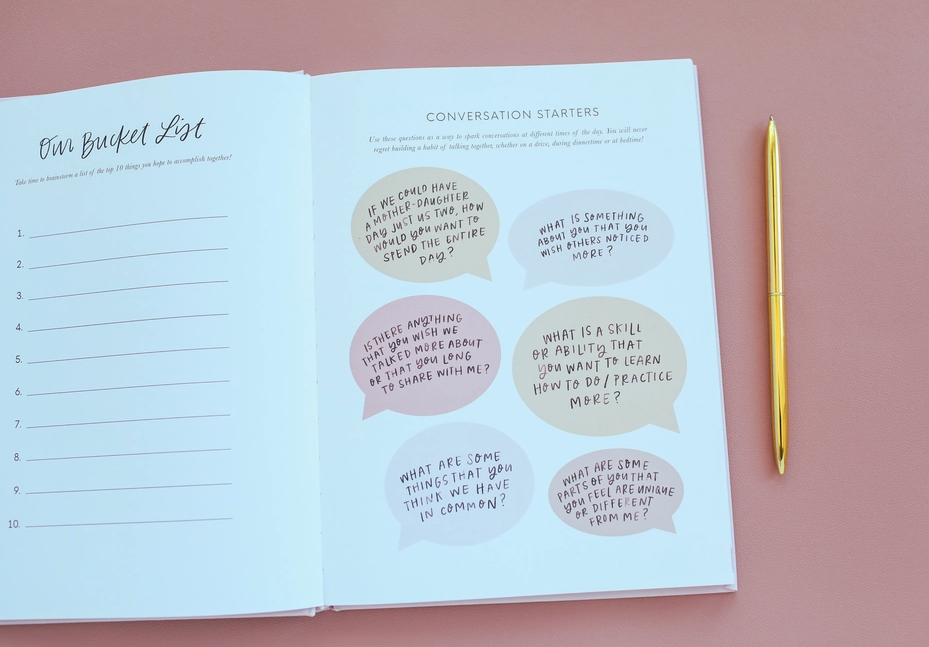 Our Bucket List
Take time to brainstorm a list of the top 10 things you hope to accomplish together!
1.
2.
3.
4.
5.
6.
7.
8.
9.
10.
CONVERSATION STARTERS
Use these questions as a way to spark conversations at different times of the day. You will never
regret building a habit of talking together, whether on a drive, during dinnertime or at bedtime!
IF WE COULD HAVE
A MOTHER-DAUGHTER
DAY JUST US TWO, HOW
WOULD YOU WANT TO
SPEND THE ENTIRE
DAY?
WHAT IS SOMETHING
ABOUT YOU THAT YOU
WISH OTHERS NOTICED
MORE?
IS THERE ANYTHING
THAT YOU WISH WE
TALKED MORE ABOUT
OR THAT YOU LONG
TO SHARE WITH ME?
WHAT IS A SKILL
OR ABILITY THAT
YOU WANT TO LEARN
HOW TO DO/PRACTICE
MORE?
WHAT ARE SOME
THINGS THAT YOU
THINK WE HAVE
IN COMMON?
WHAT ARE SOME
PARTS OF YOU THAT
YOU FEEL ARE UNIQUE
OR DIFFERENT
FROM ME?